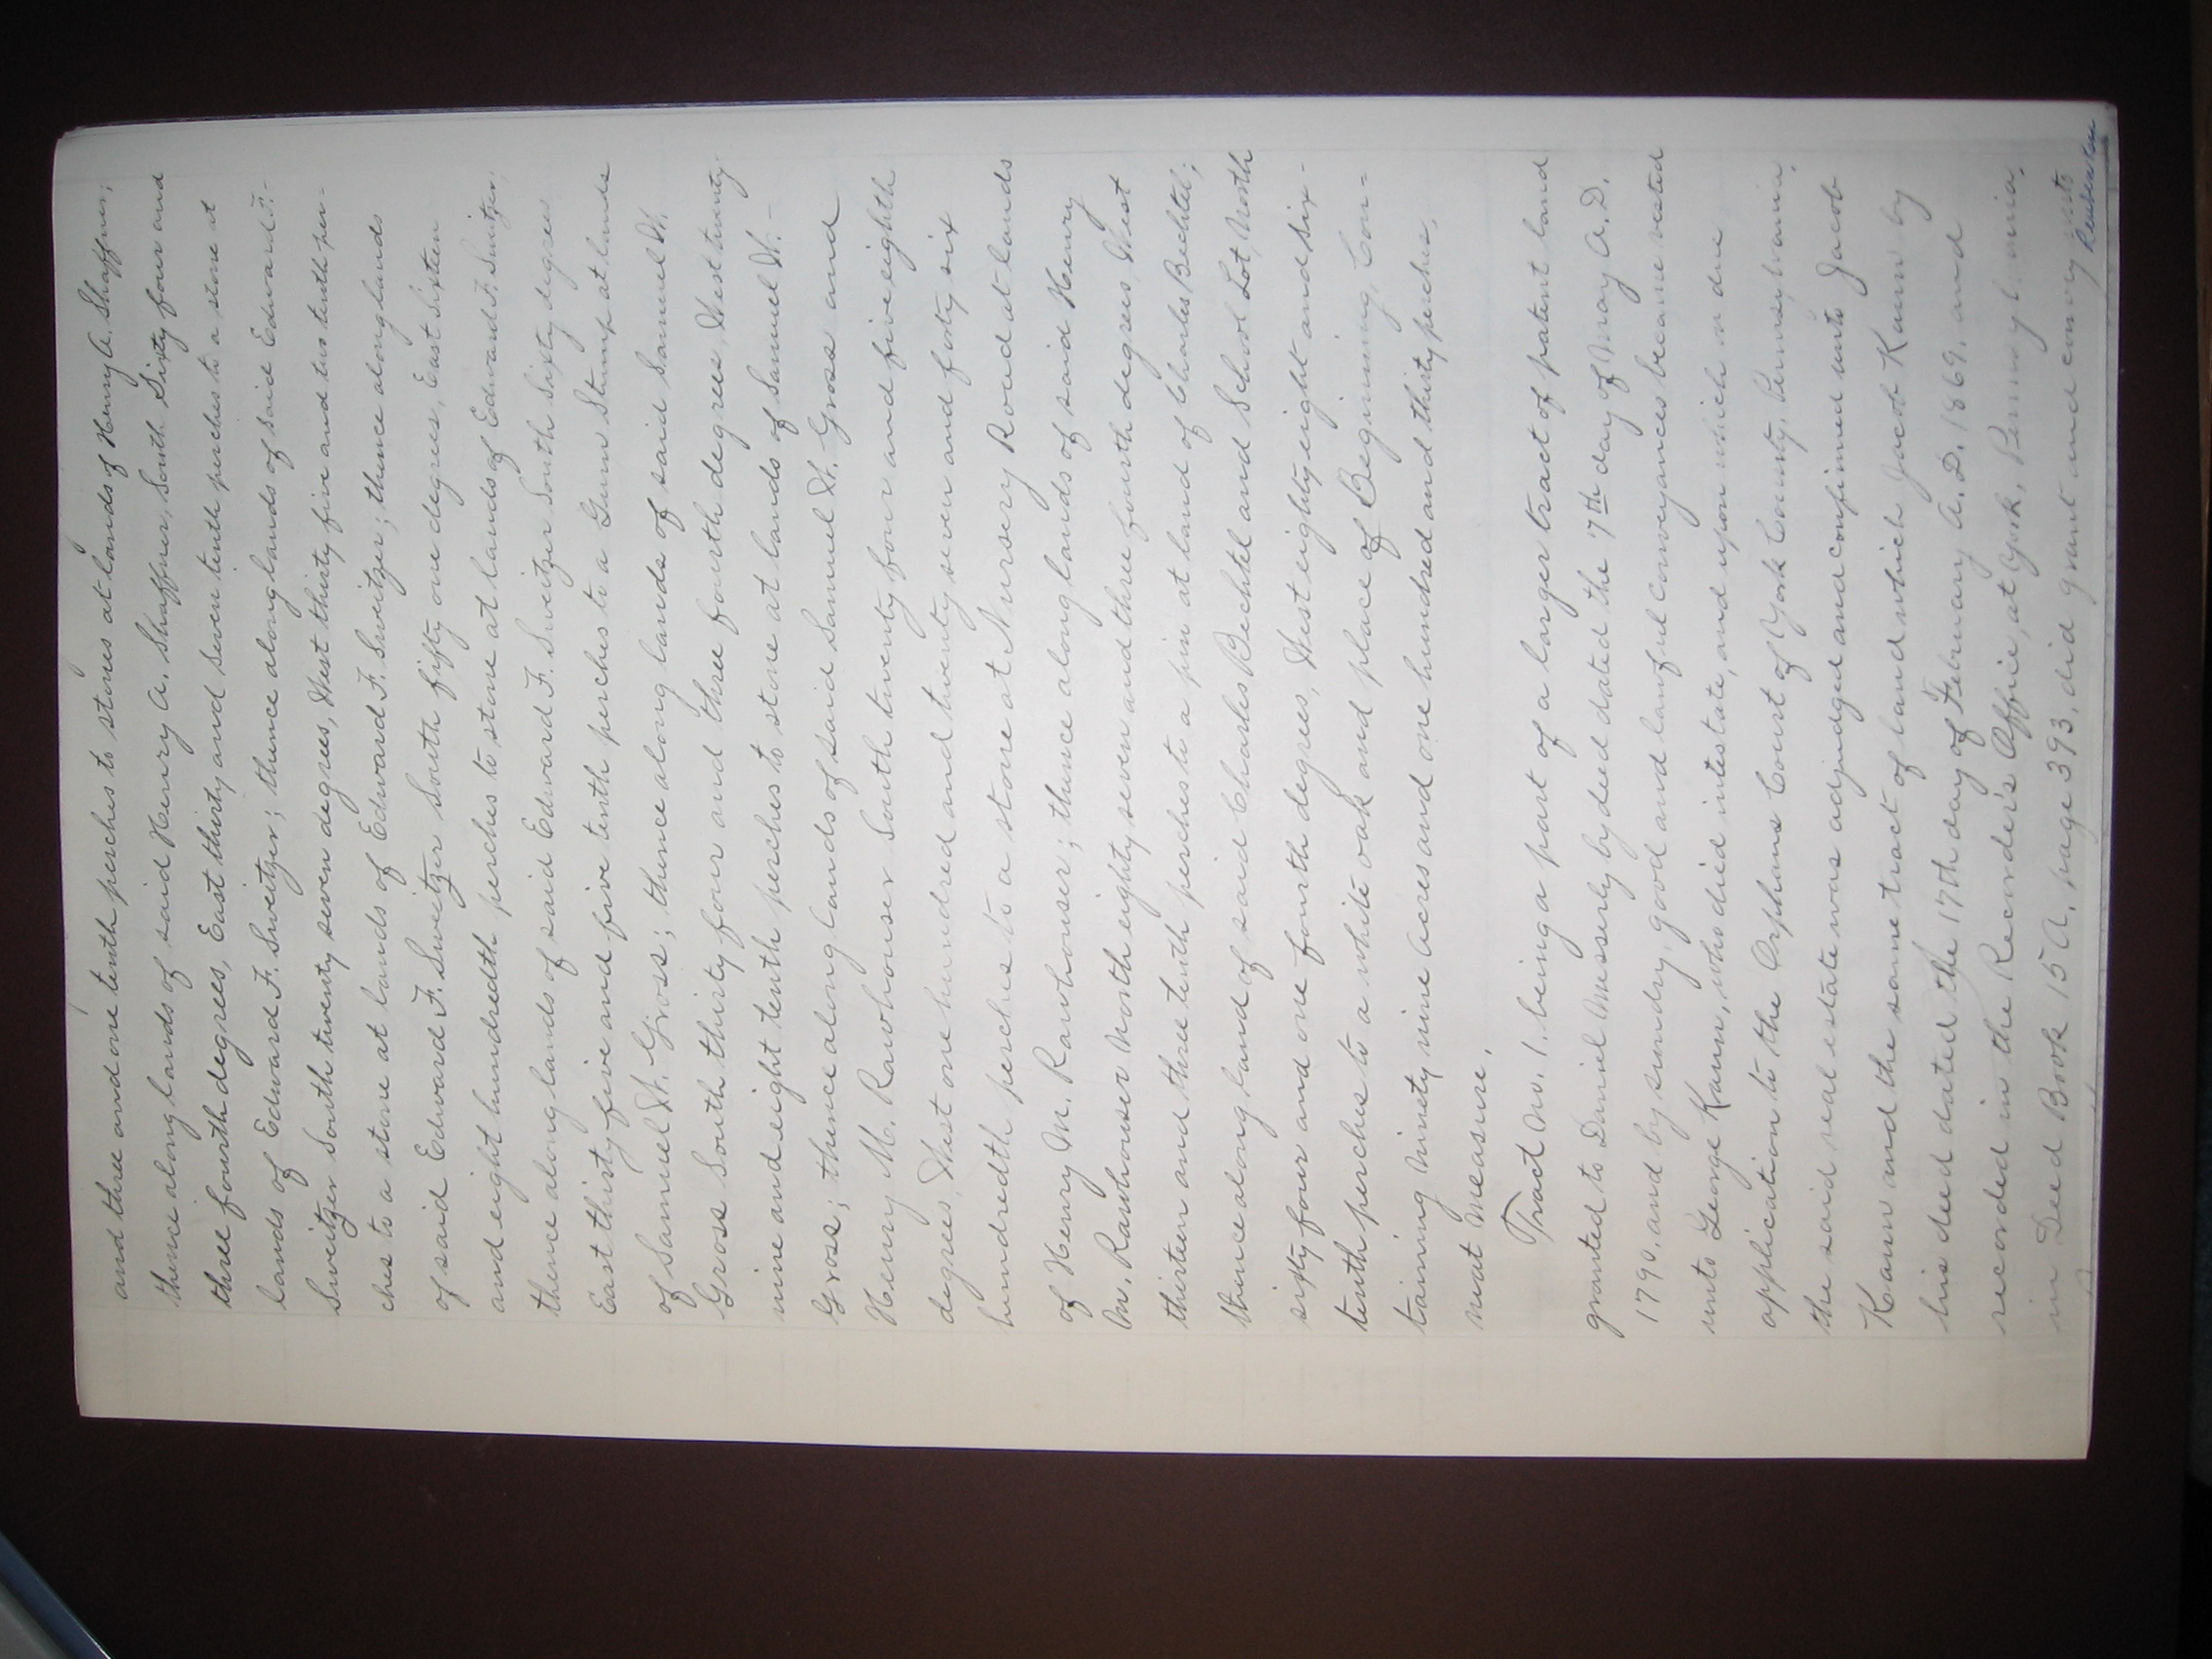 and three and one tenth perches to stones at lands of Henry A. Shaffner;
thence along lands of said Henry A. Shaffner, South Sixty four and
three fourth degrees, East thirty and seven tenth perches to a stone at
lands of Edward F. Sweitzer; thence along lands of said Edward F.
Sweitzer South twenty seven degrees, West thirty five and two tenth per-
ches to a stone at lands of Edward F. Sweitzer; thence along lands
of said Edward F. Sweitzer South fifty one degrees, East Sixteen
and eight hundredth perches to stone at lands of Edward F. Sweitzer;
thence along lands of said Edward F. Sweitzer South Sixty degrees
East thirty five and five tenth perches to a Gum Stump at lands
of Samuel H. Gross; thence along lands of said Samuel H.
Gross South thirty four and three fourth degrees, West twenty
nine and eight tenth perches to stone at lands of Samuel H.-
Gross; thence along lands of said Samuel H. Gross and
Henry M. Rawhouser South twenty four and five eighth
degrees, West one hundred and twenty seven and forty six
hundredth perches to a stone at Nursery Road at lands
of Henry M. Rawhouser; thence along lands of said Henry
M. Rawhouser North eighty seven and three fourth degrees, West
thirteen and three tenth perches to a pin at land of Charles Bechtel;
thence along land of said Charles Bechtel and School Lot, North
sixty four and one fourth degrees, West eighty eight and six-
tenth perches to a white oak and place of Beginning, Con-
taining Ninety nine Acres and one hundred and thirty perches,
neat Measure.
Tract No. 1. being a part of a larger tract of patent land
granted to Daniel Messerly by deed dated the 7th day of May A.D.
1790. and by sundry, good and lawful conveyances became vested
unto George Kann, who died intestate, and upon which in due
application to the Orphans Court of York County, Pennsylvania,
the said real estate was adjudged and confirmed unto Jacob
Kann and the same tract of land which Jacob Kann by
his deed dated the 17th day of February A.D. 1869. and
recorded in the Recorder's Office, at York, Pennsylvania,
in Deed Book 15 A, page 393, did grant and convey unto